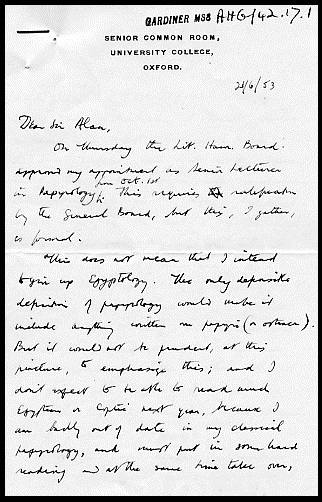 GARDINER MSS AHG/42.17.1
SENIOR COMMON ROOM,
UNIVERSITY COLLEGE,
OXFORD.
21/6/53
Dear Sir Alan,
On Thursday the Lit. Hum. Board
approved my appointment as Senior Lecturer
in Papyrology from Oct. 1st. This requires ratification
by the General Board, but this, I gather,
is formal.
This does not mean that I intend
to give up Egyptology. The only
definition of papyrology would make it
include anything written on papyri (or ostraca).
But it would not be prudent, at this
juncture, to emphasize this; and I
don't expect to be able to read much
Egyptian or Coptic next year, because I
am badly out of date in my classical
papyrology, and must put in some hard
reading and at the same time take over,